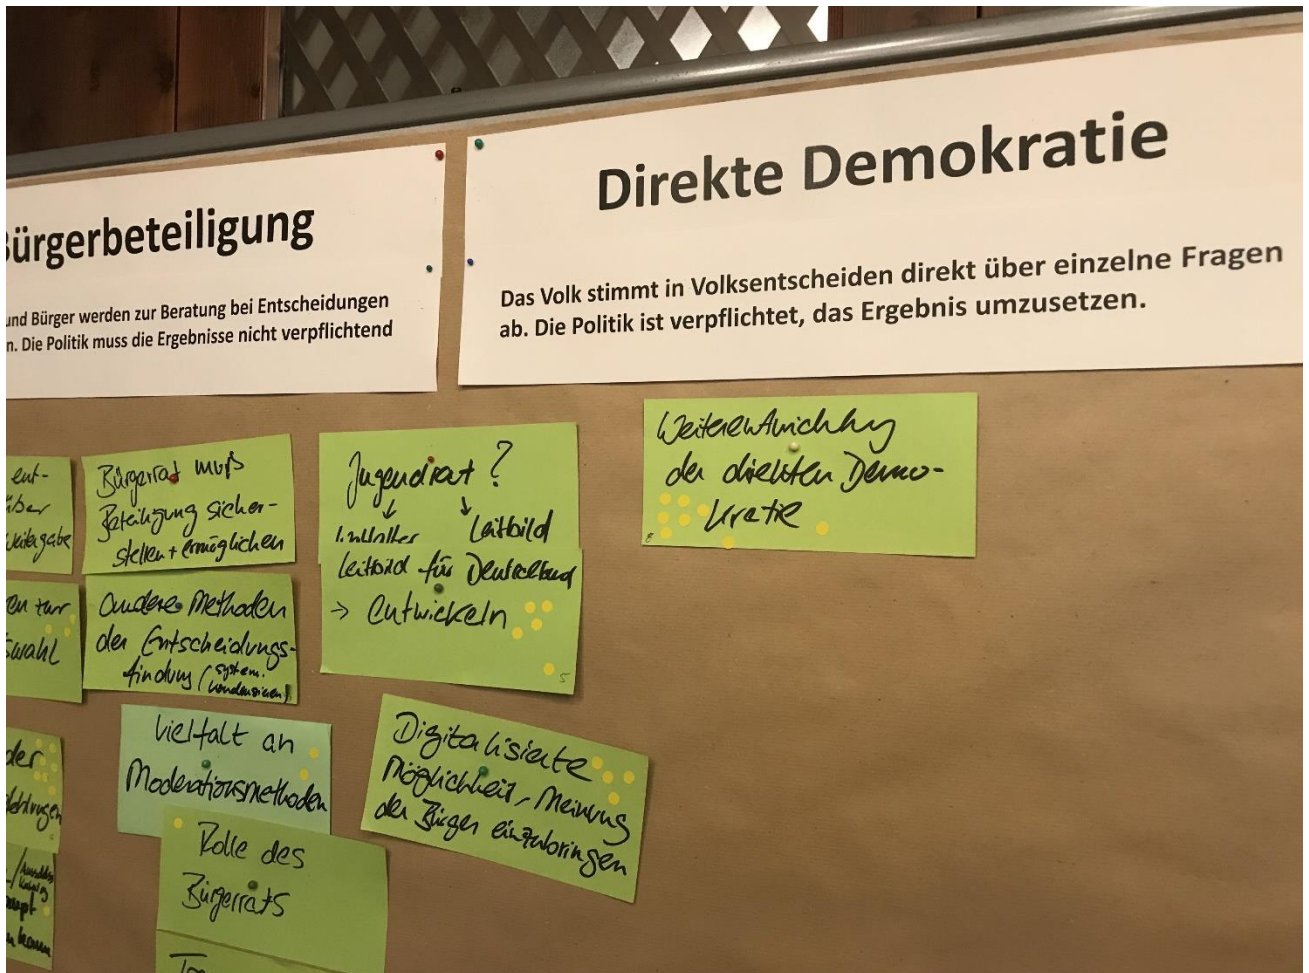 Bürgerbeteiligung
und Bürger werden zur Beratung bei Entscheidungen
n. Die Politik muss die Ergebnisse nicht verpflichtend
Direkte Demokratie
Das Volk stimmt in Volksentscheiden direkt über einzelne Fragen
ab. Die Politik ist verpflichtet, das Ergebnis umzusetzen.
ent-
über
Bürgerrat muß
Beteiligung sicher-
stellen + ermöglichen
Jugendrat?
↓ ↓
Leitbild
Leitbild für Deutschland
→ entwickeln
5
Weiterentwicklung
der direkten Demo-
kratie
8
en zur
swahl
andere Methoden
der Entscheidungs-
findung (system.
kondensieren)
der
Vielfalt an
Moderationsmethoden
Digitalisierte
Möglichkeit, Meinung
der Bürger einzubringen
Rolle des
Bürgerrats